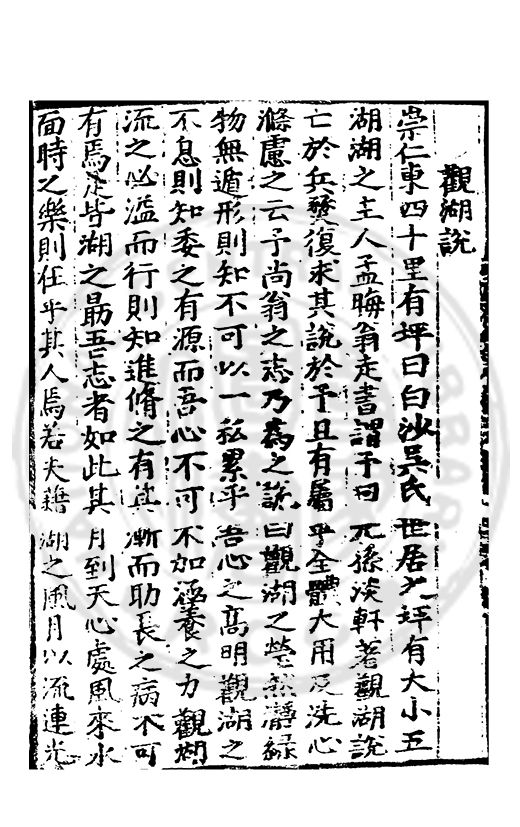 觀湖說
崇仁東四十里有坪曰白沙吳氏世居光坪有大小五
湖湖之主人孟晦翁走書謂予曰元孫淡軒著觀湖說
亡於兵燹復求其說於予且有屬乎全體大用及洗心
滌慮之云予尚翁之志乃為之說曰觀湖之瑩然瀞綠
物無遁形則知不可以一私累乎吾心之高明觀湖之
不息則知委之有源而吾心不可不加涵養之力觀湖
流之必溢而行則知進脩之有其漸而助長之病不可
有焉是皆湖之勗吾志者如此其月到天心處風來水
面時之樂則任乎其人焉若夫藉湖之風月以流連光